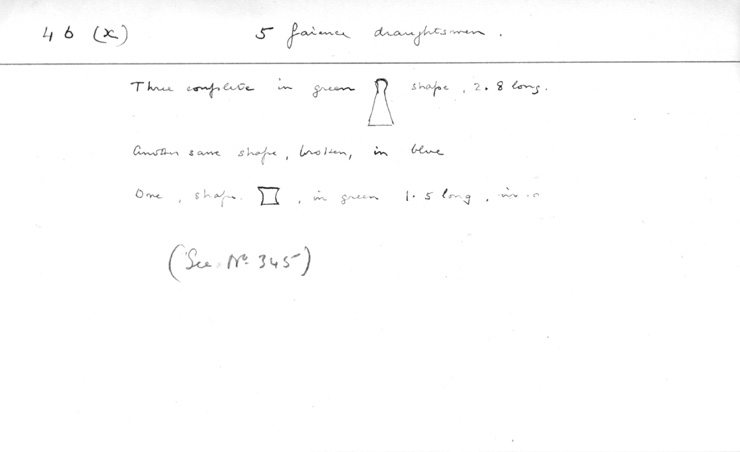 46 (x) 5 faience draughtsmen.
Three complete in green shape, 2.8 long.
Another same shape, broken, in blue
One, shape, in green 1.5 long,
(See No 345)